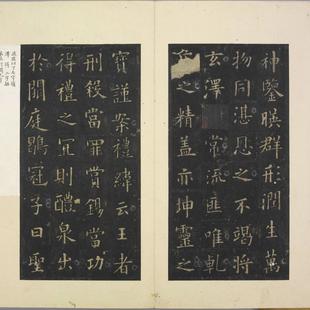 神鑒暎群形潤生萬
物同湛恩之不竭將
玄澤常流匪唯乹
之精盖亦坤靈之
寶謹案禮緯云王者
刑煞當罪賞錫當功
得禮之宜則醴泉出
於闕庭鶡冠子曰聖